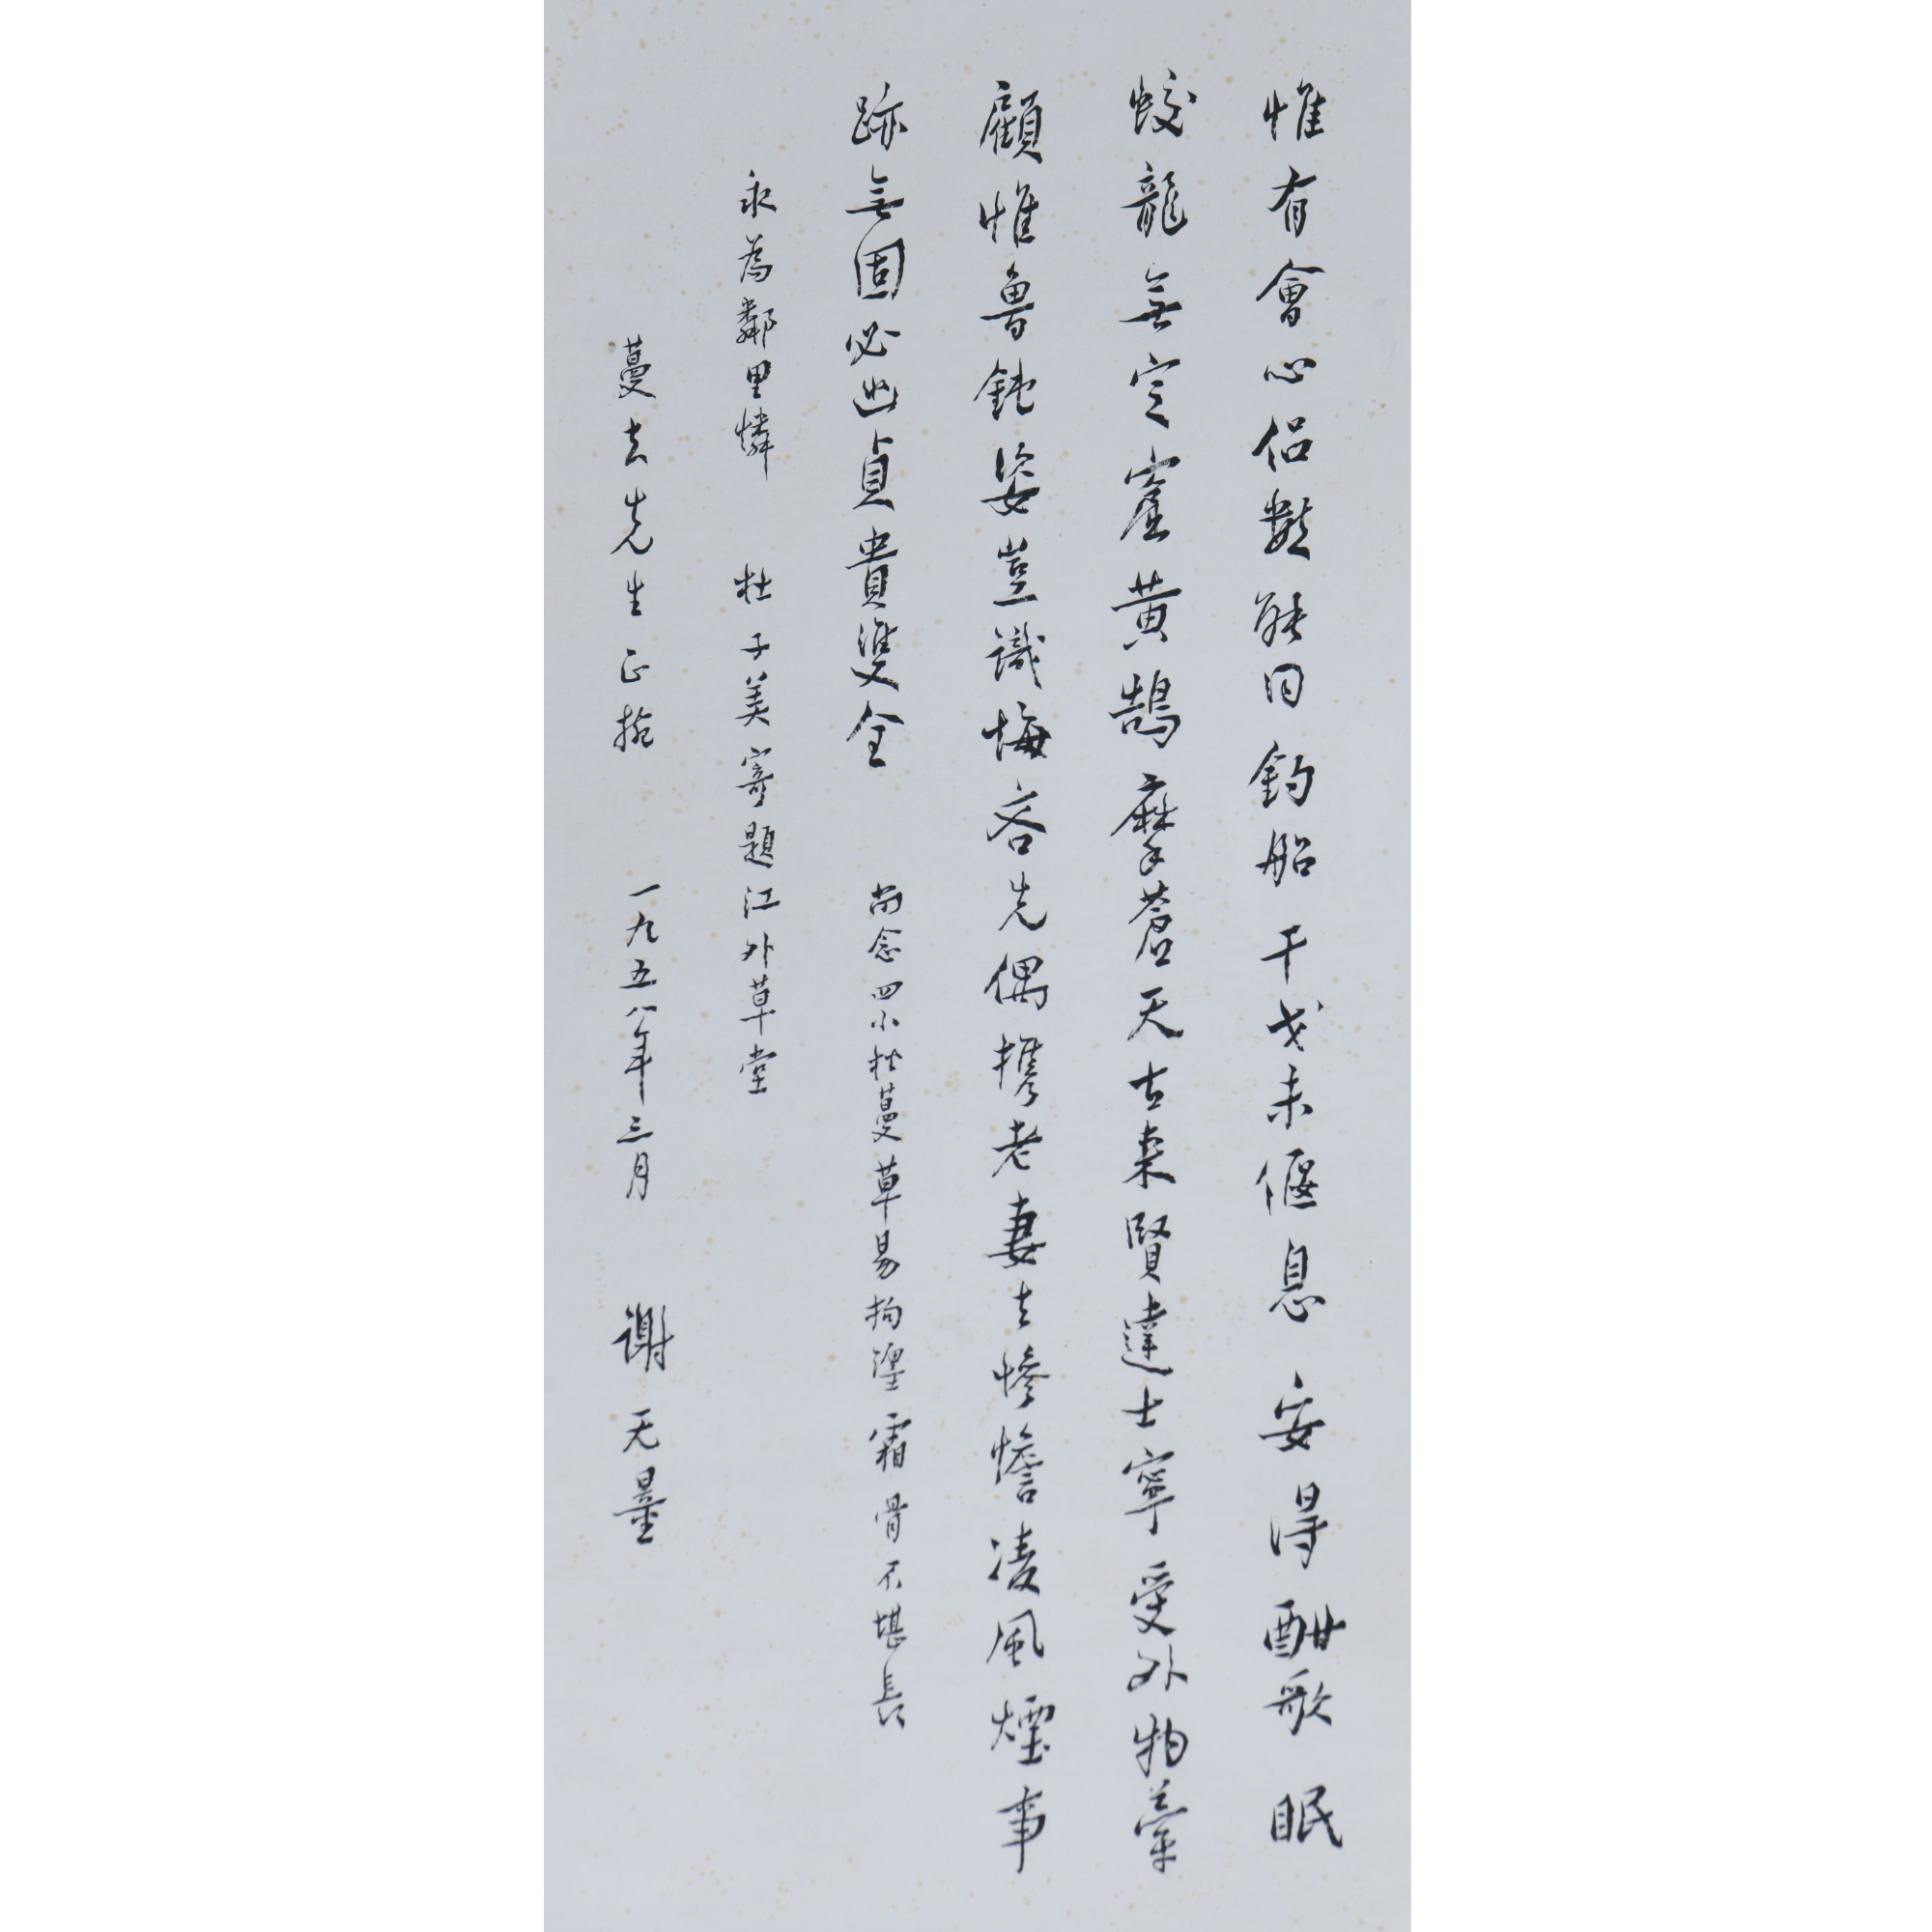 惟有會心侶數能同釣船干戈未偃息安得酣歌眠
蛟龍無定窟黃鵠摩蒼天古來賢達士寧受外物牽
顧惟魯鈍姿豈識悔吝先偶攜老妻去慘憺凌風煙事
跡無固必幽貞貴雙全尚念四小松蔓草易拘纏霜骨不堪長
永為鄰里憐 杜子美寄題江外草堂
蔓士先生正挽 一九五八年三月 謝无量